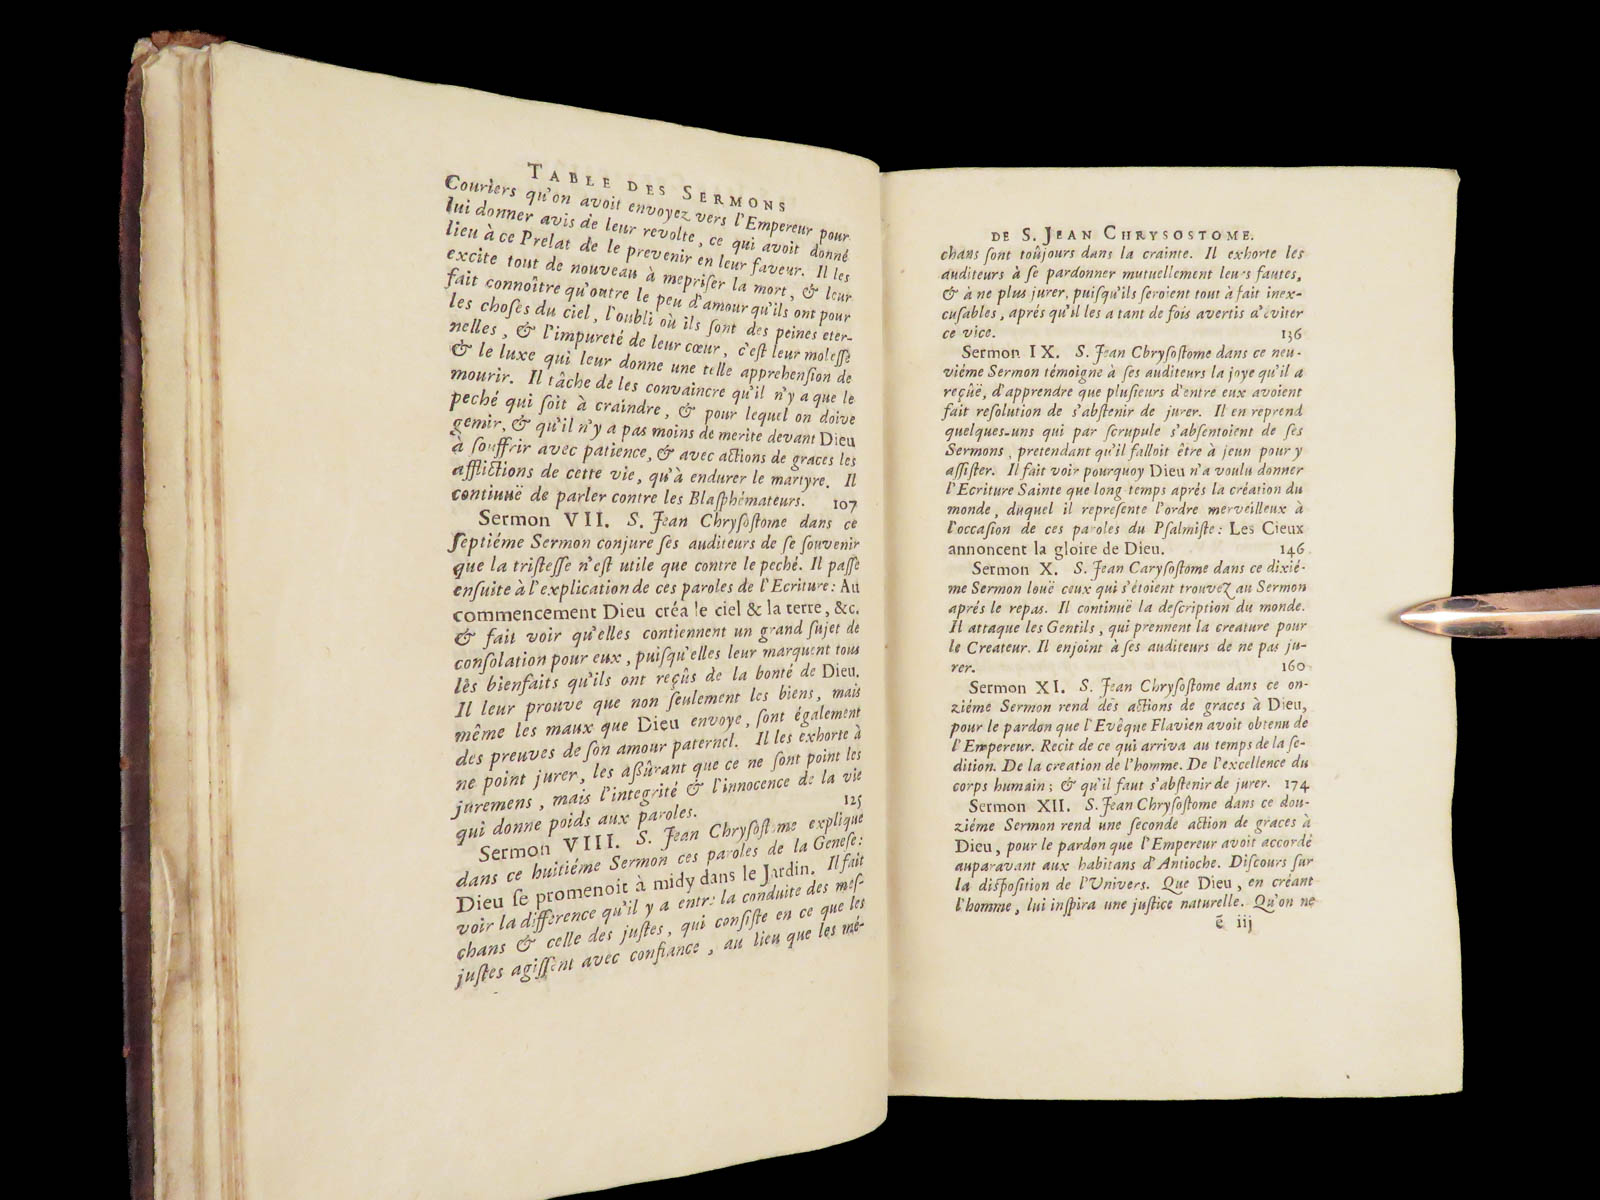 TABLE DES SERMONS
Couriers qu'on avoit envoyez vers l'Empereur pour
lui donner avis de leur revolte, ce qui avoit donné
lieu à ce Prelat de le prevenir en leur faveur. Il les
excite tout de nouveau à mepriſer la mort, & leur
fait connoître qu'outre le peu d'amour qu'ils ont pour
les choſes du ciel, l'oubli où ils ſont des peines eter-
nelles, & l'impureté de leur cœur, c'eſt leur moleſſe
& le luxe qui leur donne une telle apprehenſion de
mourir. Il tâche de les convaincre qu'il n'y a que le
peché qui ſoit à craindre, & pour lequel on doive
gemir, & qu'il n'y a pas moins de merite devant Dieu
à ſouffrir avec patience, & avec actions de graces les
afflictions de cette vie, qu'à endurer le martyre. Il
continuë de parler contre les Blaſphémateurs. 107
Sermon VII. S. Jean Chryſoſtome dans ce
ſeptiéme Sermon conjure ſes auditeurs de ſe ſouvenir
que la triſteſſe n'eſt utile que contre le peché. Il paſſe
enſuite à l'explication de ces paroles de l'Ecriture: Au
commencement Dieu créa le ciel & la terre, &c.
& fait voir qu'elles contiennent un grand ſujet de
conſolation pour eux, puiſqu'elles leur marquent tous
lès bienfaits qu'ils ont reçûs de la bonté de Dieu.
Il leur prouve que non ſeulement les biens, mais
même les maux que Dieu envoye, ſont également
des preuves de ſon amour paternel. Il les exhorte à
ne point jurer, les aßûrant que ce ne ſont point les
juremens, mais l'integrité & l'innocence de la vie
qui donne poids aux paroles. 125
Sermon VIII. S. Jean Chryſoſtome explique
dans ce huitiéme Sermon ces paroles de la Geneſe:
Dieu ſe promenoit à midy dans le Jardin. Il fait
voir la difference qu'il y a entre la conduite des meſ-
chans & celle des juſtes, qui conſiſte en ce que les
juſtes agiſſent avec confiance, au lieu que les mé-
DE S. JEAN CHRYSOSTOME.
chans ſont toûjours dans la crainte. Il exhorte les
auditeurs à ſe pardonner mutuellement leurs fautes,
& à ne plus jurer, puiſqu'ils ſeroient tout à fait inex-
cuſables, aprés qu'il les a tant de fois avertis d'éviter
ce vice. 136
Sermon IX. S. Jean Chryſoſtome dans ce neu-
viéme Sermon témoigne à ſes auditeurs la joye qu'il a
reçûë, d'apprendre que pluſieurs d'entre eux avoient
fait reſolution de s'abſtenir de jurer. Il en reprend
quelques-uns qui par ſcrupule s'abſentoient de ſes
Sermons, pretendant qu'il falloit être à jeun pour y
aſſiſter. Il fait voir pourquoy Dieu n'a voulu donner
l'Ecriture Sainte que long temps aprés la création du
monde, duquel il repreſente l'ordre merveilleux à
l'occaſion de ces paroles du Pſalmiſte: Les Cieux
annoncent la gloire de Dieu. 146
Sermon X. S. Jean Caryſoſtome dans ce dixié-
me Sermon louë ceux qui s'étoient trouvez au Sermon
aprés le repas. Il continuë la deſcription du monde.
Il attaque les Gentils, qui prennent la creature pour
le Createur. Il enjoint à ſes auditeurs de ne pas ju-
rer. 160
Sermon XI. S. Jean Chryſoſtome dans ce on-
ziéme Sermon rend des actions de graces à Dieu,
pour le pardon que l'Evêque Flavien avoit obtenu de
l'Empereur. Recit de ce qui arriva au temps de la ſe-
dition. De la creation de l'homme. De l'excellence du
corps humain; & qu'il faut s'abſtenir de jurer. 174
Sermon XII. S. Jean Chryſoſtome dans ce dou-
ziéme Sermon rend une ſeconde action de graces à
Dieu, pour le pardon que l'Empereur avoit accordé
auparavant aux habitans d'Antioche. Diſcours ſur
la diſpoſition de l'Univers. Que Dieu, en créant
l'homme, lui inſpira une juſtice naturelle. Qu'on ne
ẽ iij